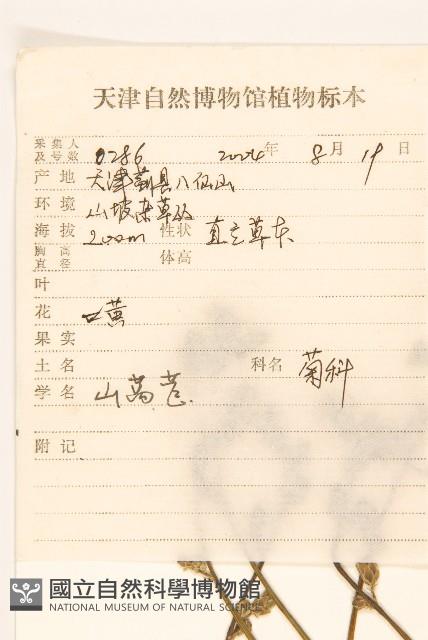 天津自然博物馆植物标本
采集人及号数 0286 2004年 8月 19日
产地 天津蓟县八仙山
环境 山坡杂草丛
海拔 200m 性状 直立草本
胸高直径 体高
叶
花 黄
果实
土名 科名 菊科
学名 山莴苣
附记
國立自然科學博物館
NATIONAL MUSEUM OF NATURAL SCIENCE